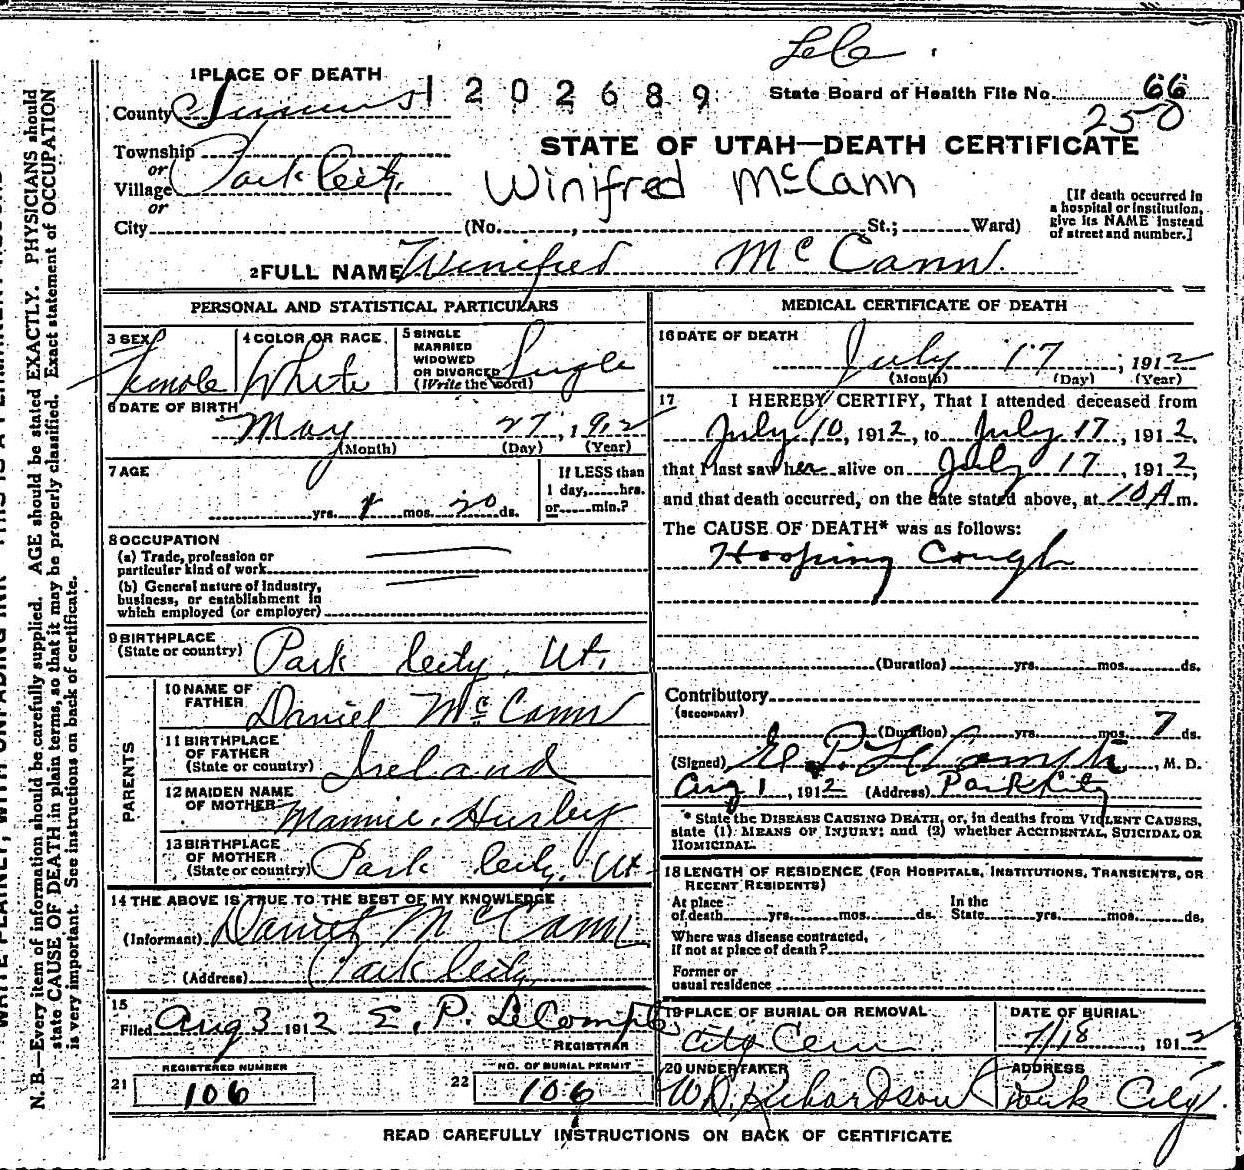 1 PLACE OF DEATH
1202689
State Board of Health File No. 66
250
County Summit
STATE OF UTAH—DEATH CERTIFICATE
Township
or
Village Park City.
or
Winifred McCann
[If death occurred in a hospital or institution, give its NAME instead of street and number.]
City (No. , St.; Ward)
2 FULL NAME Winifred McCann.
PERSONAL AND STATISTICAL PARTICULARS
3 SEX Female
4 COLOR OR RACE White
5 SINGLE MARRIED WIDOWED OR DIVORCED (Write the word) Single
6 DATE OF BIRTH
May 27, 1912
(Month) (Day) (Year)
7 AGE
yrs. 1 mos. 20 ds.
If LESS than 1 day, hrs. or min.?
8 OCCUPATION
(a) Trade, profession or particular kind of work
(b) General nature of industry, business, or establishment in which employed (or employer)
9 BIRTHPLACE
(State or country) Park City, Ut.
PARENTS
10 NAME OF FATHER Daniel McCann
11 BIRTHPLACE OF FATHER (State or country) Ireland
12 MAIDEN NAME OF MOTHER Mamie Hurley
13 BIRTHPLACE OF MOTHER (State or country) Park City, Ut.
14 THE ABOVE IS TRUE TO THE BEST OF MY KNOWLEDGE
(Informant) Daniel McCann
(Address) Park City,
15
Filed Aug 3 1912 E. P. LeCompte
REGISTRAR
21 REGISTERED NUMBER 106
22 NO. OF BURIAL PERMIT 106
MEDICAL CERTIFICATE OF DEATH
16 DATE OF DEATH
July 17, 1912
(Month) (Day) (Year)
17 I HEREBY CERTIFY, That I attended deceased from
July 10, 1912, to July 17, 1912,
that I last saw her alive on July 17, 1912,
and that death occurred, on the date stated above, at 10 A m.
The CAUSE OF DEATH* was as follows:
Hooping Cough
(Duration) yrs. mos. ds.
Contributory
(SECONDARY)
(Duration) yrs. mos. 7 ds.
(Signed) E. P. LeCompte, M. D.
Aug 1, 1912 (Address) Park City
* State the DISEASE CAUSING DEATH, or, in deaths from VIOLENT CAUSES,
state (1) MEANS OF INJURY; and (2) whether ACCIDENTAL, SUICIDAL OR
HOMICIDAL.
18 LENGTH OF RESIDENCE (FOR HOSPITALS, INSTITUTIONS, TRANSIENTS, OR
RECENT RESIDENTS)
At place of death yrs. mos. ds. In the State yrs. mos. ds.
Where was disease contracted,
if not at place of death?
Former or
usual residence
19 PLACE OF BURIAL OR REMOVAL
City Cem
DATE OF BURIAL
7/18, 1912
20 UNDERTAKER
W D. Richardson
ADDRESS
Park City.
READ CAREFULLY INSTRUCTIONS ON BACK OF CERTIFICATE
N. B.—Every item of information should be carefully supplied. AGE should be stated EXACTLY. PHYSICIANS should
state CAUSE OF DEATH in plain terms, so that it may be properly classified. Exact statement of OCCUPATION
is very important. See instructions on back of certificate.